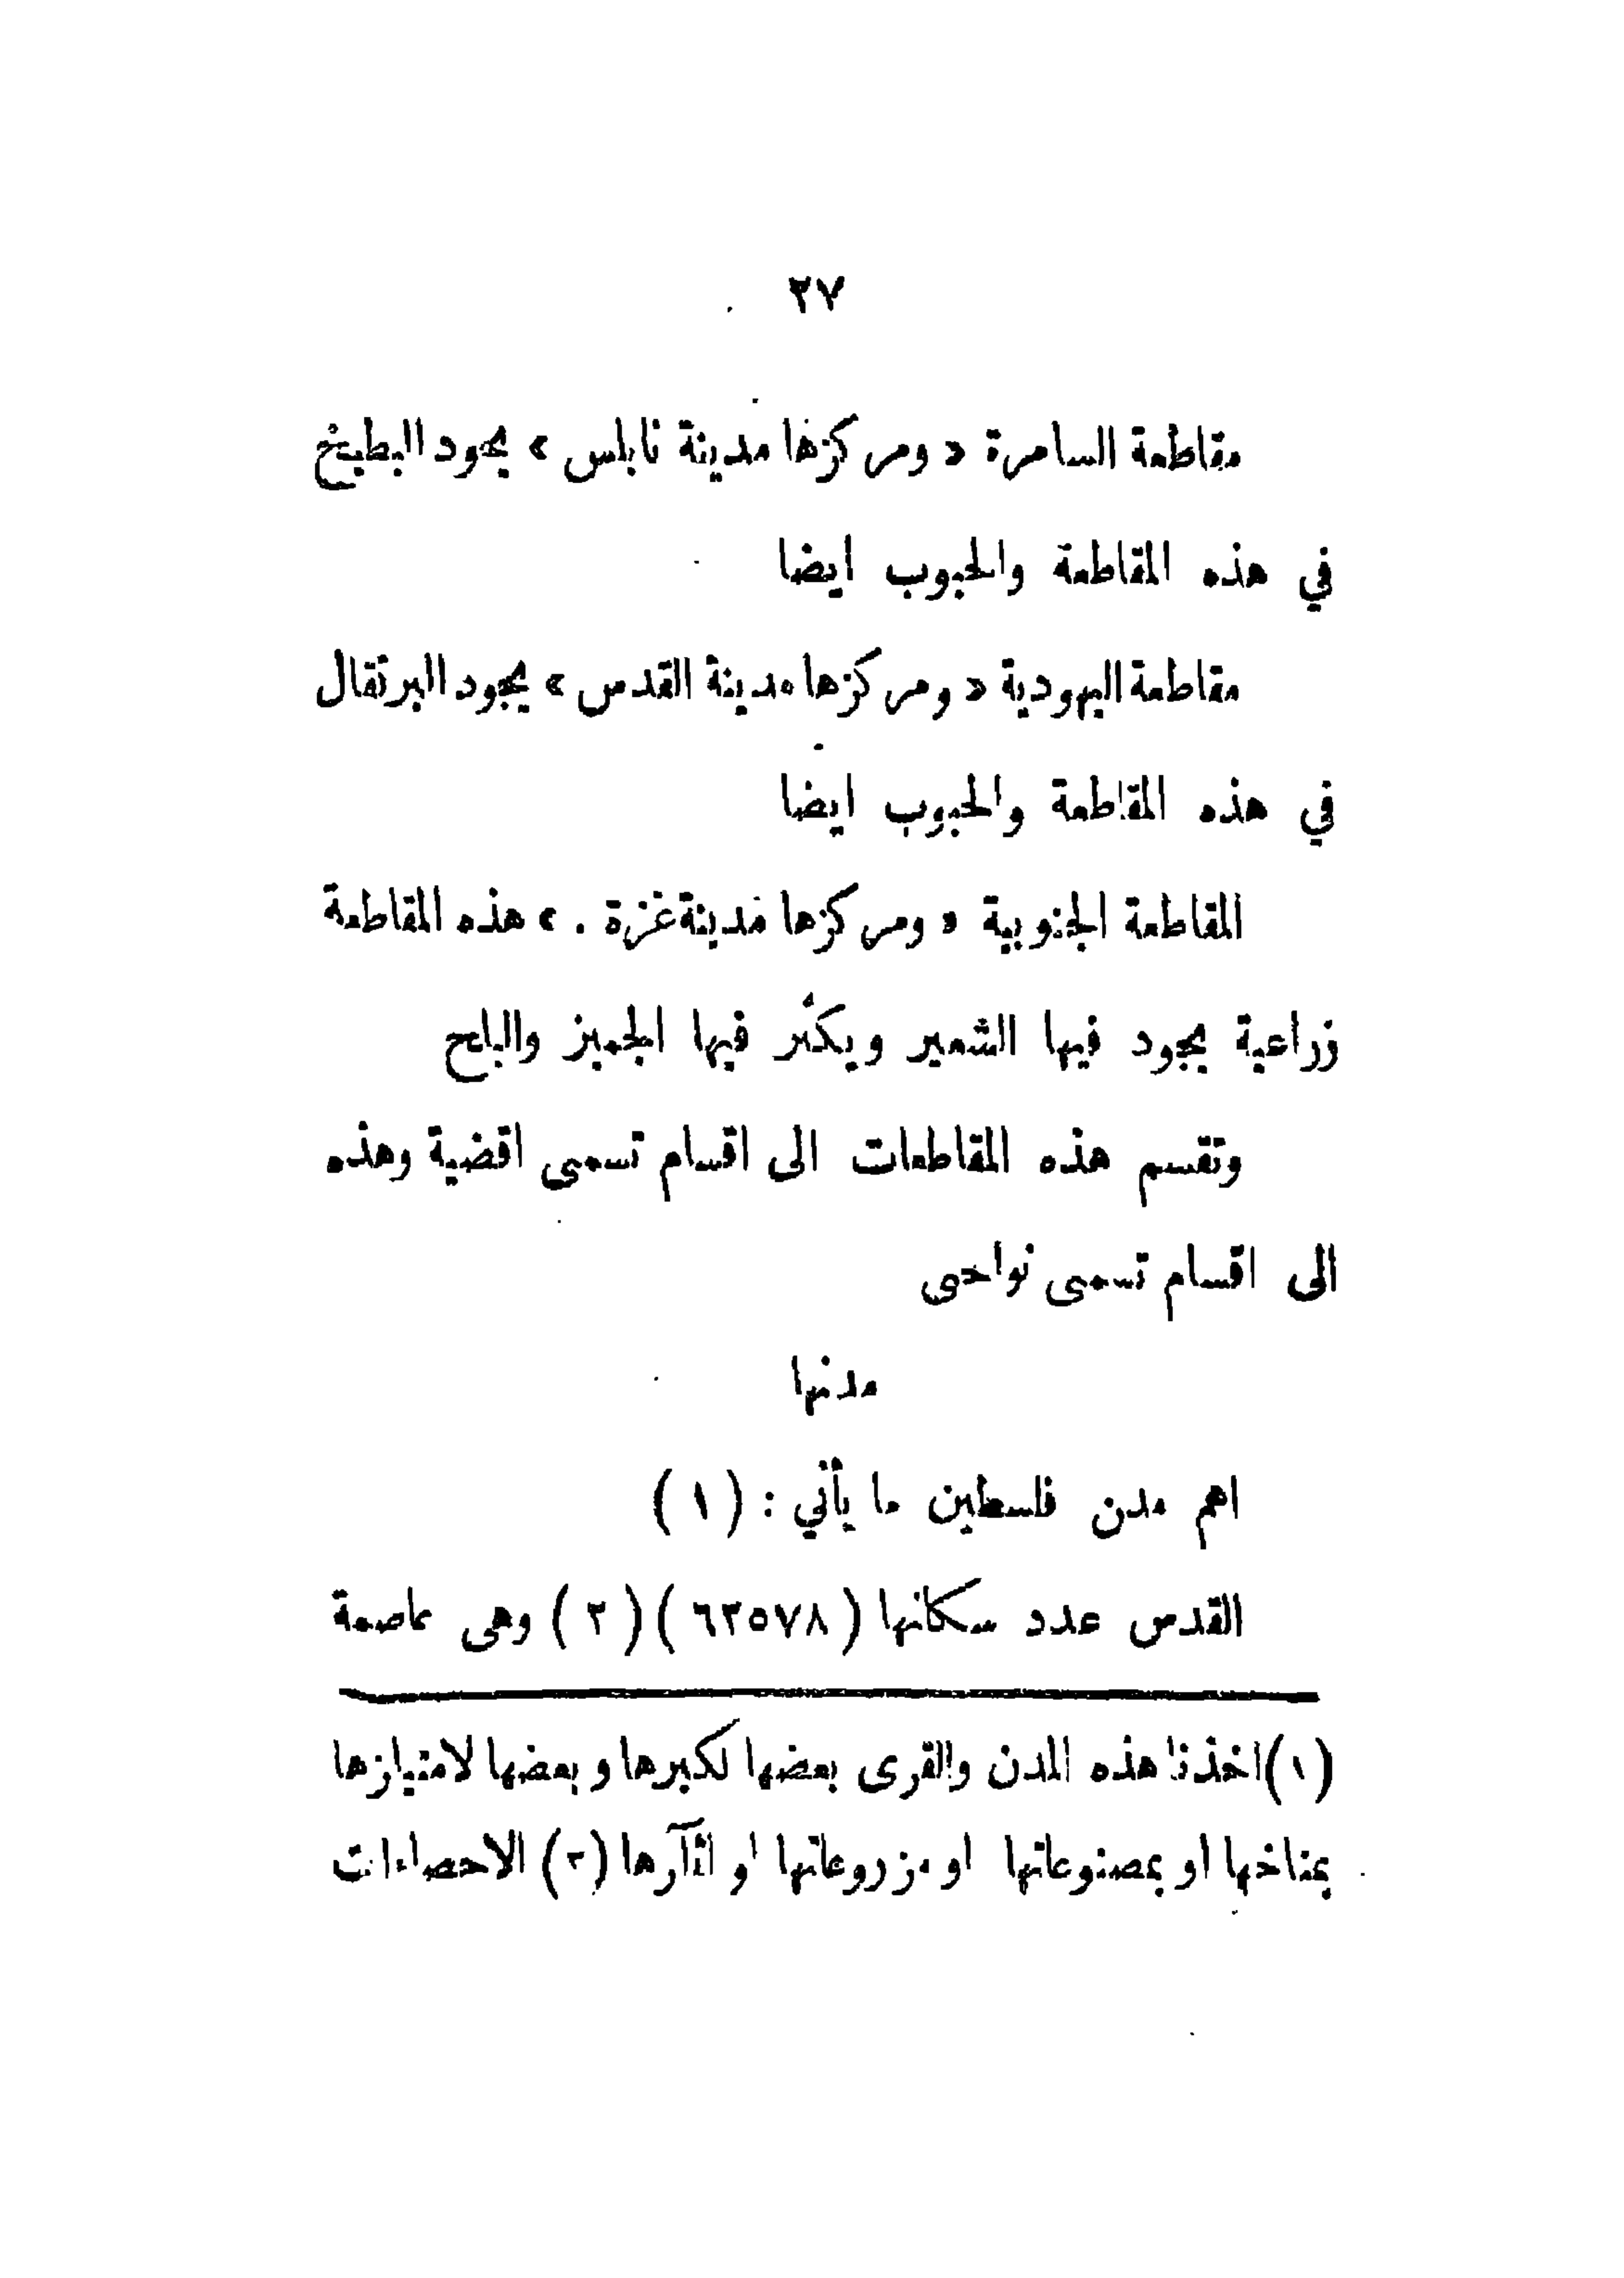 ٢٧
مقاطعة السامرة « ومركزها مدينة نابلس » يجود البطيخ
في هذه المقاطعة والحبوب ايضا
مقاطعة اليهودية « ومركزها مدينة القدس » يجود البرتقال
في هذه المقاطعة والحبوب ايضا
المقاطعة الجنوبية « ومركزها مدينة غزة . » هذه المقاطعة
زراعية يجود فيها الشعير ويكثر فيها الجميز والبلح
وتقسم هذه المقاطعات الى اقسام تسمى اقضية وهذه
الى اقسام تسمى نواحى
مدنها
اهم مدن فلسطين ما يأتي : ( ١ )
القدس عدد سكانها ( ٦٢٥٧٨ ) ( ٢ ) وهى عاصمة
(١) اخذنا هذه المدن والقرى بعضها لكبرها و بعضها لامتيازها
بمناخها او بمصنوعاتها او مزروعاتها او اثآرها (٢) الاحصاءات